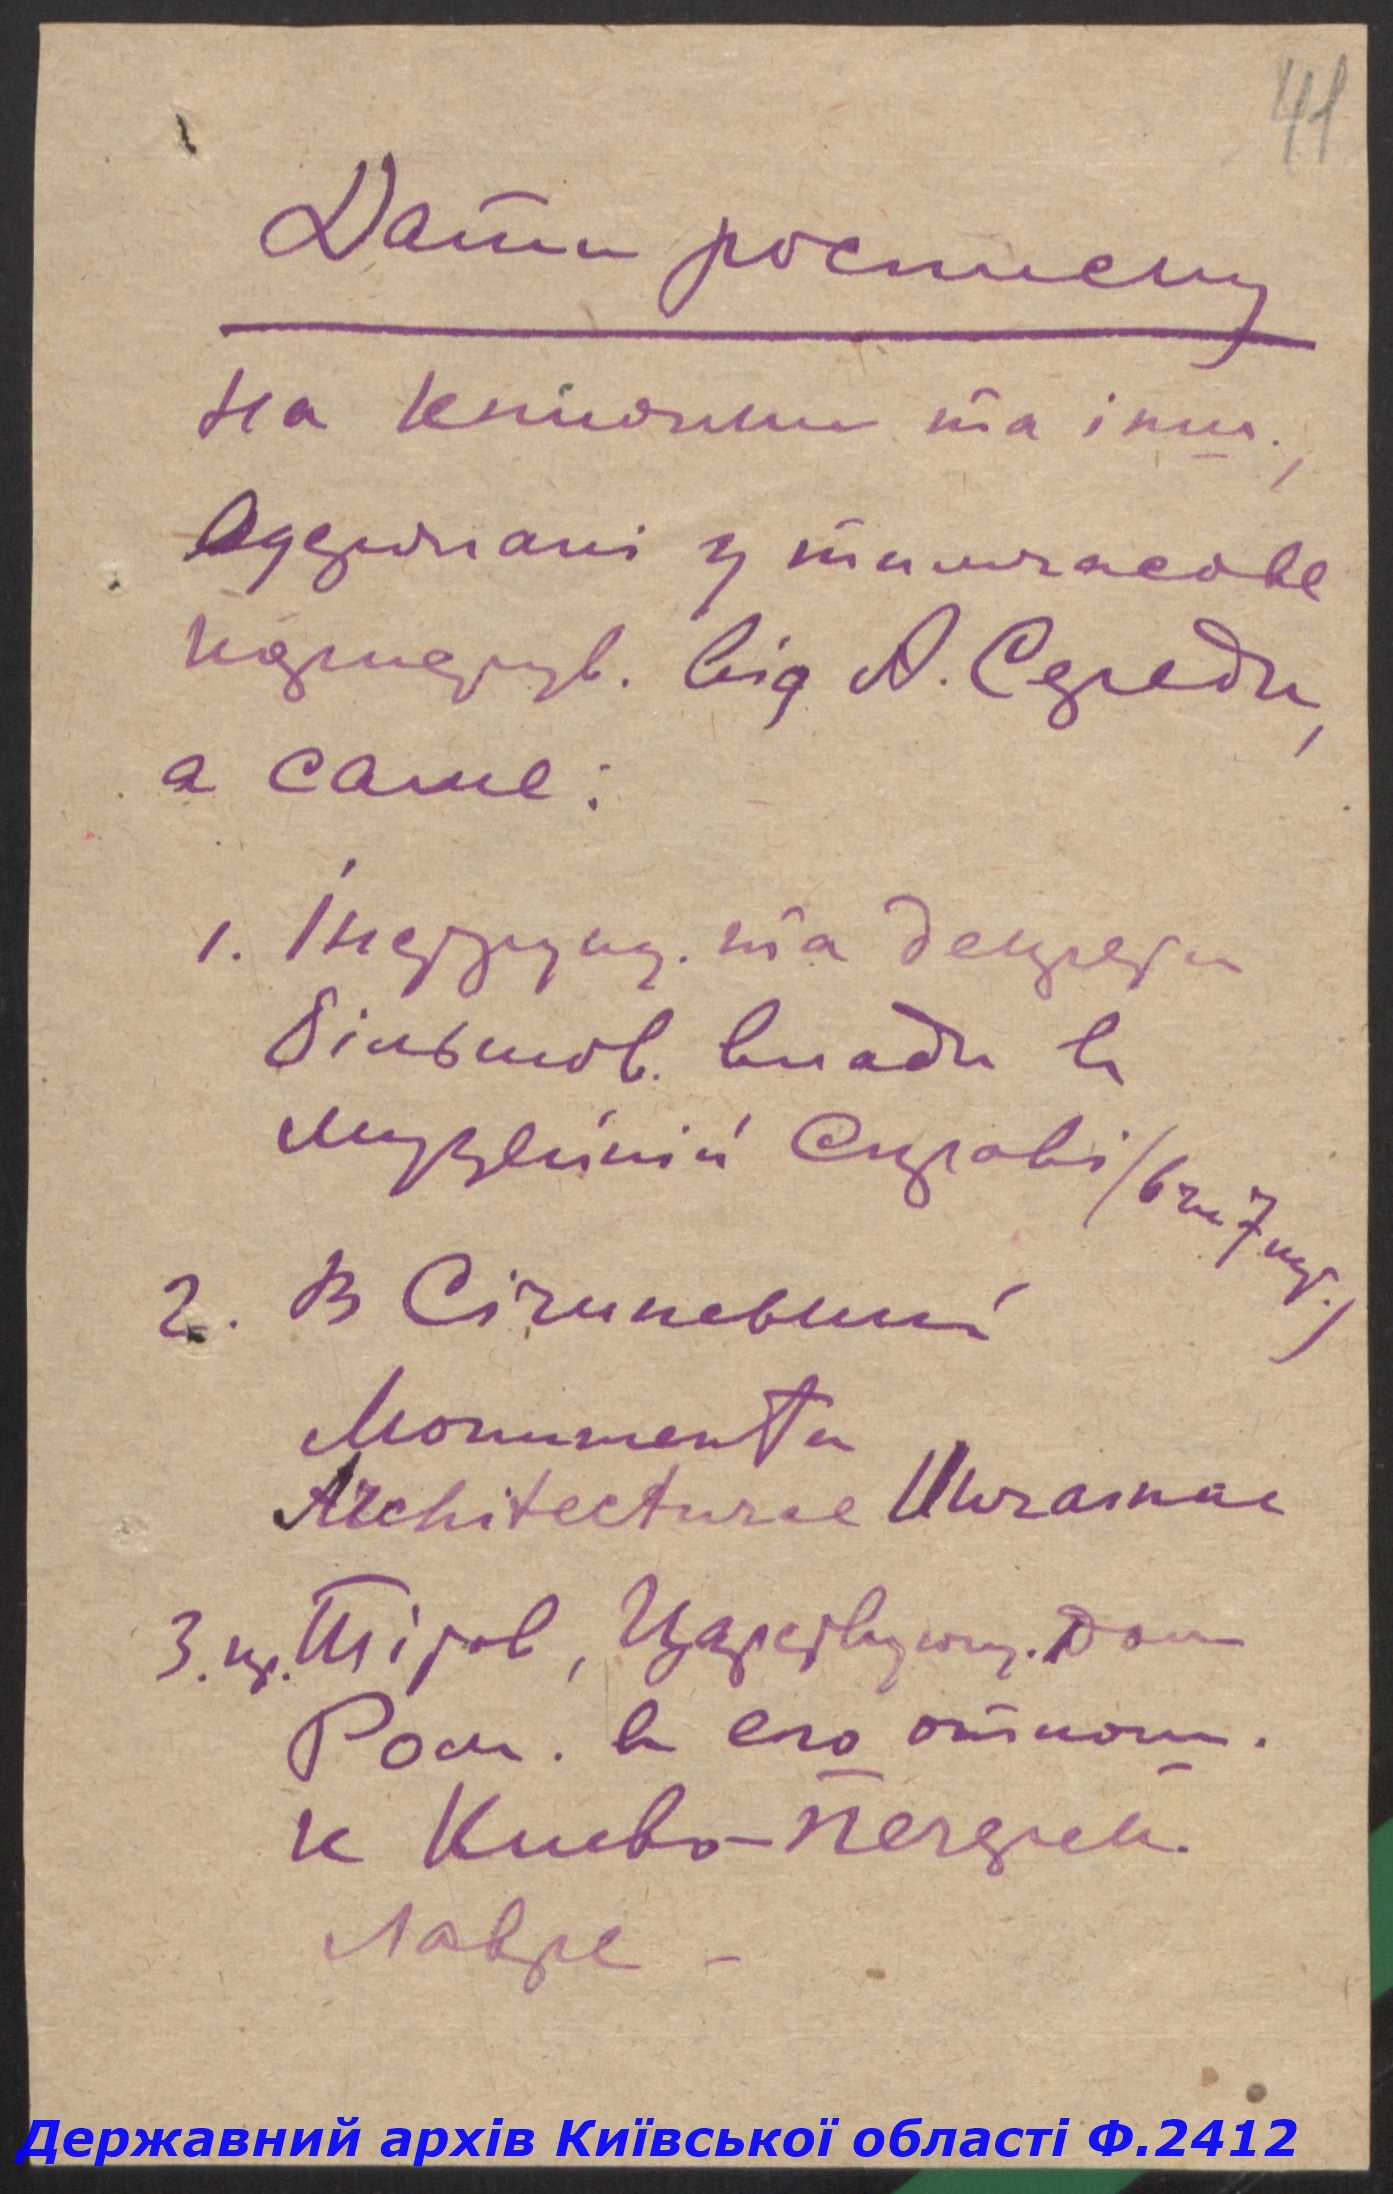 41
Дати росписку
на книжки та інш.,
Одержані у тимчасове
користув. від А. Середи,
а саме:
1. Інструкц. та декрети
більшов. влади в
музейній справі /6 та 7 кр./
2. В Січинський
Monumenta
Architecturae Ukrainae
3. пр. Тітов, Царствующ. Дом
Ром. в его отнош.
к Киево-Печерск.
Лавре -
Державний архів Київської області Ф.2412